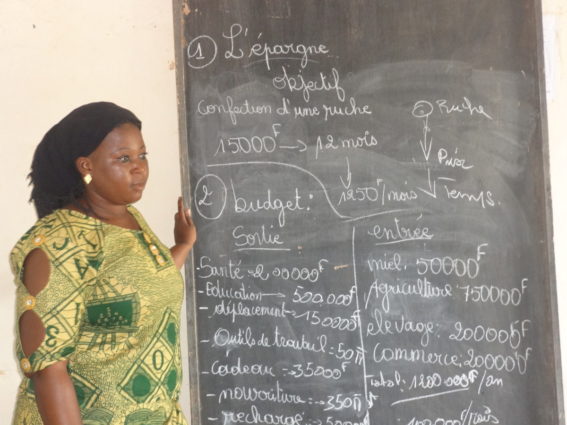 ① L'épargne
objectif
confection d'une ruche
15000F → 12 mois
1250F/mois
Ruche
Prix
Temps.
② budget:
Sortie
Santé = 200000F
- Education → 500.000F
- déplacement → 150000F
- Outils de travail = 50
- Cadeau = 35000F
- nourriture = 350
- recharge =
entrée
miel: 50000F
Agriculture: 750000F
elevage: 200000F
Commerce: 200000F
Total: 1200 000F/an